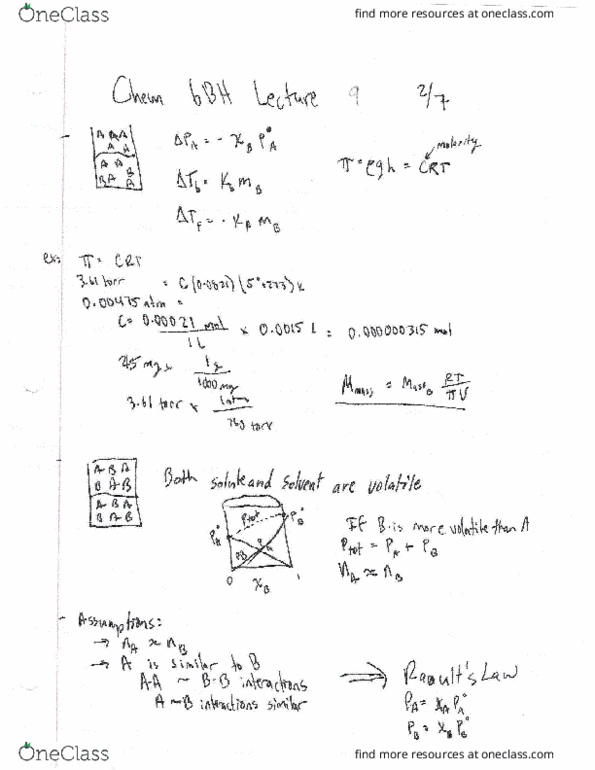 OneClass
find more resources at oneclass.com
Chem 6BH Lecture 9 2/7
A A A
A A
A A
B
B A A
ΔP_A = - X_B P°_A
ΔT_b = K_b m_B
ΔT_f = - K_f m_B
π = ρgh = CRT
molarity
ex: π = CRT
3.61 torr = C (0.0821) (5°+273) K
0.00475 atm =
C = 0.00021 mol / 1 L × 0.0015 L = 0.000000315 mol
1 g / 1000 mg
3.61 torr × 1 atm / 760 torr
M_mass = Mass_B RT / πV
A B A
B A B
A B A
B A B
Both solute and solvent are volatile
P_A° P_tot P_B°
P_B P_A
0 X_B 1
If B is more volatile than A
P_tot = P_A + P_B
n_A ≈ n_B
Assumptions:
→ n_A ≈ n_B
→ A is similar to B
A-A ~ B-B interactions
A~B interactions similar
⇒ Raoult's Law
P_A = X_A P_A°
P_B = X_B P_B°
OneClass
find more resources at oneclass.com